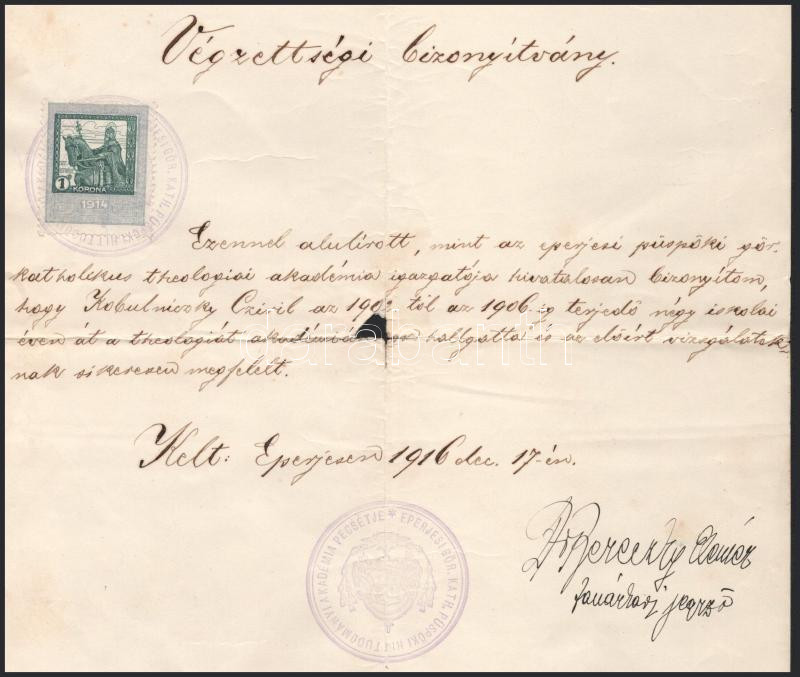 Végzettségi bizonyítvány.
1 KORONA
1914
Ezennel alulírott, mint az eperjesi püspöki gör.
katholikus theologiai akadémia igazgatója hivatalosan bizonyítom,
hogy Kobulniczky Cziril az 190 től az 1906-ig terjedő négy iskolai
éven át a theologiát hallgatta és az előirt vizsgálatok-
nak sikeresen megfelelt.
Kelt: Eperjesen 1916 dec. 17-én.
EPERJESI GÖR. KATH. PÜSPÖKI HITTUDOMÁNYI AKADÉMIA PECSÉTJE *
jegyző
darabanth